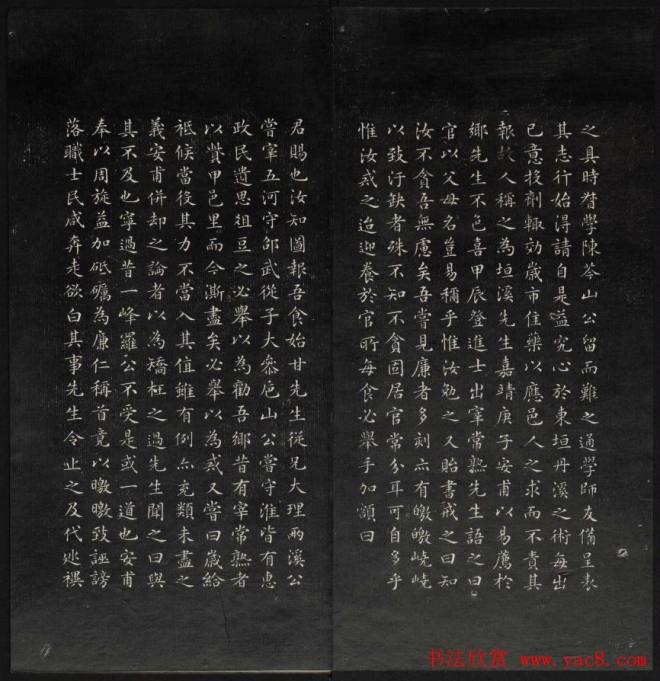 之具時督學陳苓山公留而難之通學師友備呈表
其志行始得請自是益究心於東垣丹溪之術每出
己意投劑輒効歲市佳藥以應邑人之求而不責其
報故人稱之為垣溪先生嘉靖庚子安甫以易薦於
鄉先生不色喜甲辰登進士出宰常熟先生語之曰
官以父母名豈易稱乎惟汝勉之又貽書戒之曰知
汝不貪吾無慮矣吾嘗見廉者多刻亦有皦皦嶢嶢
以致汙缺者殊不知不貪固居官常分耳可自多乎
惟汝戒之迨迎養於官所每食必舉手加額曰
君賜也汝知圖報吾食始甘先生從兄大理兩溪公
嘗宰五河守邵武從子大參巵山公嘗守淮皆有惠
政民遺思俎豆之必舉以為勸吾鄉昔有宰常熟者
以貲甲邑里而今澌盡矣必舉以為戒又嘗曰歲給
祗候當役其力不當入其值雖有例亦充類未盡之
義安甫併却之論者以為矯枉之過先生聞之曰與
其不及也寧過昔一峰羅公不受是或一道也安甫
奉以周旋益加砥礪為廉仁稱首竟以皦皦致誣謗
落職士民咸奔走欲白其事先生令止之及代妣禩
书法欣赏 www.yac8.com